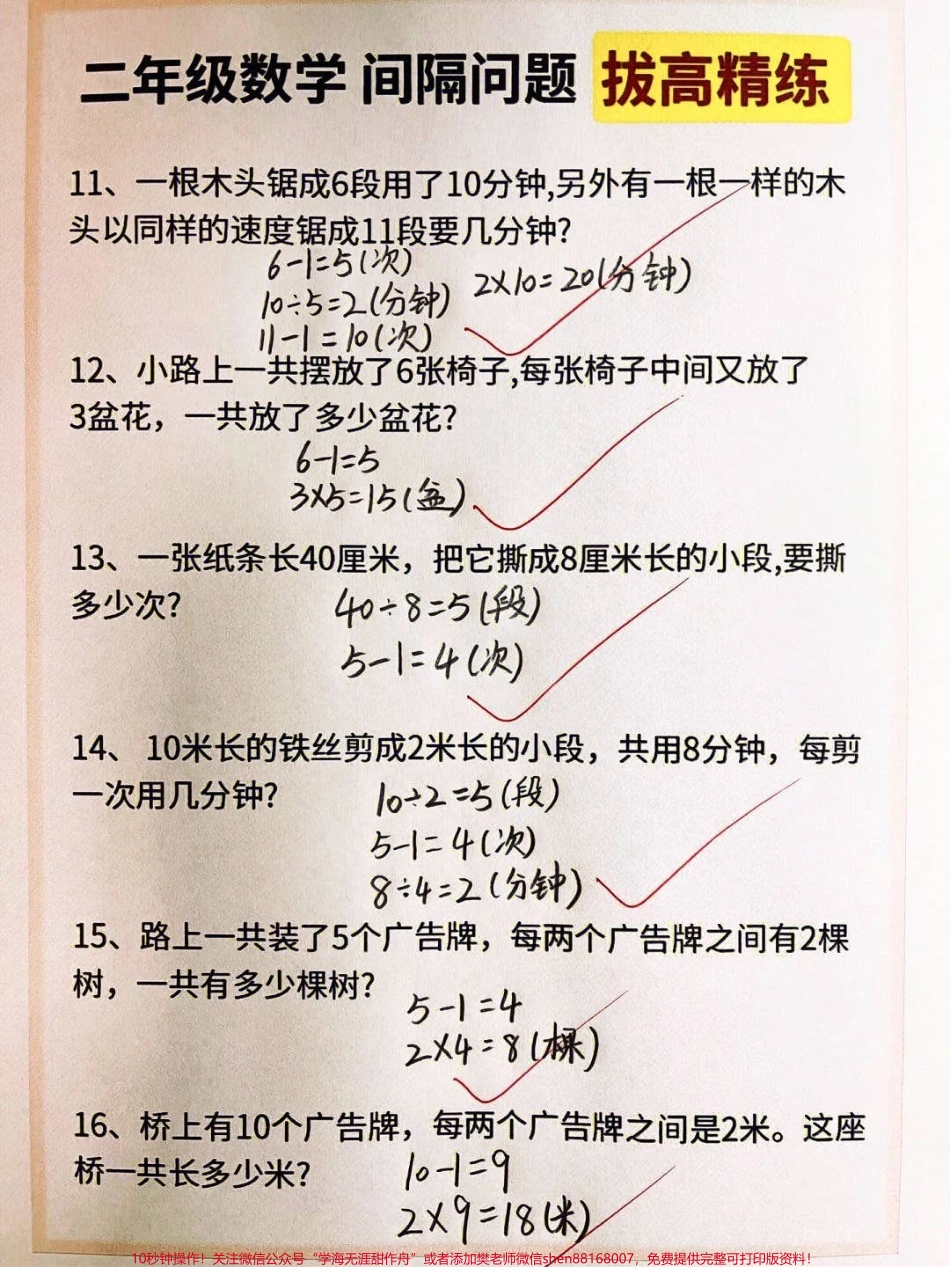 二年级数学 间隔问题 拔高精练
11、一根木头锯成6段用了10分钟,另外有一根一样的木
头以同样的速度锯成11段要几分钟?
6-1=5(次)
10÷5=2(分钟) 2×10=20(分钟)
11-1=10(次)
12、小路上一共摆放了6张椅子,每张椅子中间又放了
3盆花，一共放了多少盆花?
6-1=5
3×5=15(盆)
13、一张纸条长40厘米，把它撕成8厘米长的小段,要撕
多少次?
40÷8=5(段)
5-1=4(次)
14、 10米长的铁丝剪成2米长的小段，共用8分钟，每剪
一次用几分钟?
10÷2=5(段)
5-1=4(次)
8÷4=2(分钟)
15、路上一共装了5个广告牌，每两个广告牌之间有2棵
树，一共有多少棵树?
5-1=4
2×4=8(棵)
16、桥上有10个广告牌，每两个广告牌之间是2米。这座
桥一共长多少米?
10-1=9
2×9=18(米)
10秒钟操作！关注微信公众号“学海无涯甜作舟”或者添加樊老师微信shen88168007，免费提供完整可打印版资料！